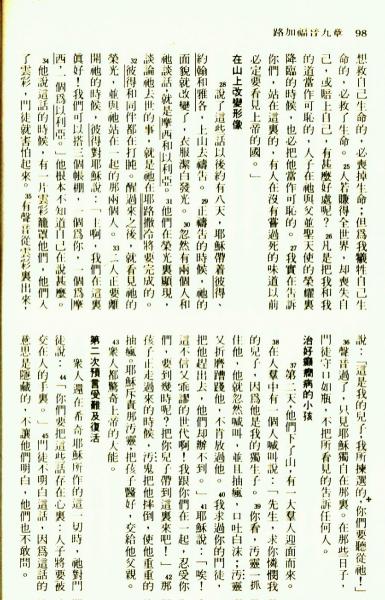 路加福音九章 98
想救自己生命的，必喪掉生命；但為我犧牲自己生
命的，必救了生命。25人若賺得全世界，却喪失自
己，或賠上自己，有甚麼好處呢？26凡是把我和我
的道當作可恥的，人子在祂與父並聖天使的榮耀裏
降臨的時候，也必把他當作可恥的。27我實在告訴
你們，站在這裏的，有人在沒有嘗過死的味道以前
必定要看見上帝的國。」
在山上改變形像
28說了這些話以後約有八天，耶穌帶着彼得、
約翰和雅各，上山去禱告。29正禱告的時候，祂的
面貌就改變了，衣服潔白發光。30忽然有兩個人和
祂談話，就是摩西和以利亞。31他們在榮光裏顯現，
談論祂去世的事，就是祂在耶路撒冷將要完成的。
32彼得和同伴都在打盹，醒過來之後，就看見祂的
榮光，並與祂站在一起的那兩個人。33二人正要離
開祂的時候，彼得對耶穌說：「主啊，我們在這裏
真好！我們可以搭三個帳棚，一個為你，一個為摩
西，一個為以利亞。」他根本不知道自己在說甚麼。
34他說這話的時候，有一片雲彩籠罩他們，他們入
了雲彩，門徒就害怕起來。35有聲音從雲彩裏出來，
說：「這是我的兒子，我所揀選的，你們要聽從祂！」
36聲音過了，只見耶穌獨自在那裏。在那些日子，
門徒守口如瓶，不把所看見的告訴任何人。
治好癲癇病的小孩
37第二天，他們下了山，有一大羣人迎面而來。
38在人羣中有一個人喊叫說：「先生，求你憐憫我
的兒子，因為他是我的獨生子。39你看，污靈一抓
住他，他就忽然喊叫，並且抽瘋，口吐白沫；污靈
又折磨蹧踐他，不肯放過他。40我求過你的門徒，
把他趕出去，他們却辦不到。」41耶穌說：「唉！
這不信又乖謬的世代啊，我跟你們在一起，忍受你
們，要到幾時呢？把你兒子帶到這裏來吧！」42那
孩子正走過來的時候，污鬼把他摔倒，使他重重的
抽瘋。耶穌斥責那污靈，把孩子醫好，交給他父親。
43衆人都驚奇上帝的大能。
第二次預言受難及復活
衆人還在希奇耶穌所作的這一切時，祂對門
徒說：44「你們要把這些話存在心裏：人子將要被
交在人的手裏。」45門徒不明白這話，因為這話的
意思是隱藏的，不讓他們明白，他們也不敢問。